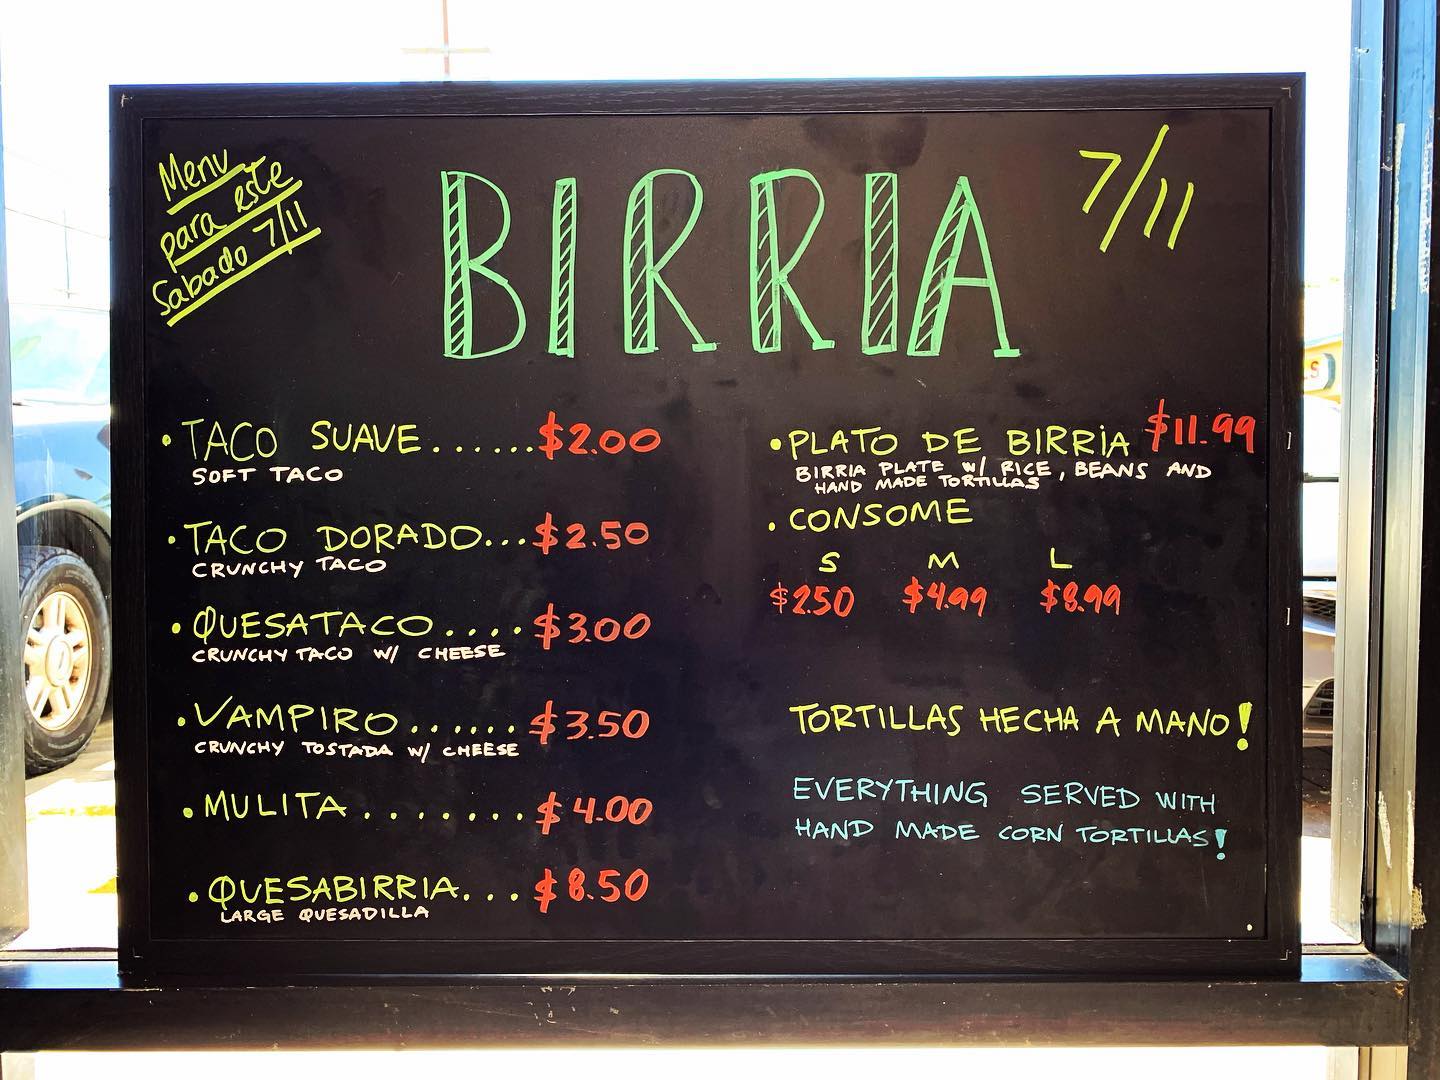 Menu
para este
Sabado 7/11
BIRRIA
7/11
• TACO SUAVE......$2.00
SOFT TACO
• TACO DORADO...$2.50
CRUNCHY TACO
• QUESATACO....$3.00
CRUNCHY TACO W/ CHEESE
• VAMPIRO......$3.50
CRUNCHY TOSTADA W/ CHEESE
• MULITA.......$4.00
• QUESABIRRIA...$8.50
LARGE QUESADILLA
• PLATO DE BIRRiA $11.99
BIRRIA PLATE W/ RICE, BEANS AND
HAND MADE TORTILLAS
• CONSOME
S M L
$2.50 $4.99 $8.99
TORTILLAS HECHA A MANO!
EVERYTHING SERVED WITH
HAND MADE CORN TORTILLAS!